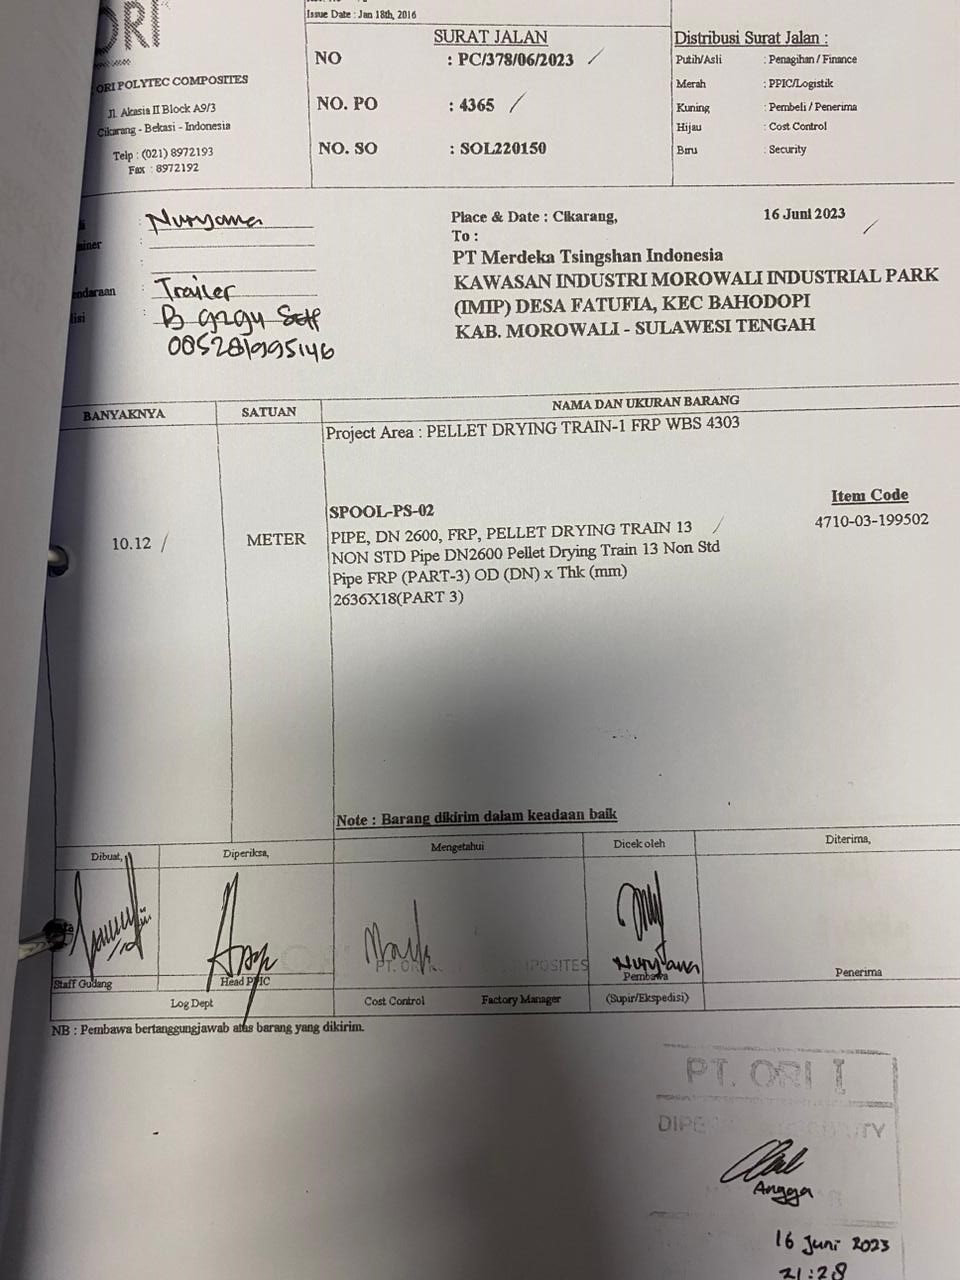 ORI
Issue Date : Jan 18th, 2016
ORI POLYTEC COMPOSITES
Jl. Akasia II Block A9/3
Cikarang - Bekasi - Indonesia
Telp : (021) 8972193
Fax : 8972192
SURAT JALAN
NO : PC/378/06/2023
NO. PO : 4365
NO. SO : SOL220150
Distribusi Surat Jalan :
Putih/Asli : Penagihan / Finance
Merah : PPIC/Logistik
Kuning : Pembeli / Penerima
Hijau : Cost Control
Biru : Security
: Nuryana
:
:
: Trailer
:
085281995146
Place & Date : Cikarang, 16 Juni 2023
To :
PT Merdeka Tsingshan Indonesia
KAWASAN INDUSTRI MOROWALI INDUSTRIAL PARK
(IMIP) DESA FATUFIA, KEC BAHODOPI
KAB. MOROWALI - SULAWESI TENGAH
BANYAKNYA SATUAN NAMA DAN UKURAN BARANG
Project Area : PELLET DRYING TRAIN-1 FRP WBS 4303
Item Code
SPOOL-PS-02
4710-03-199502
10.12 METER PIPE, DN 2600, FRP, PELLET DRYING TRAIN 13
NON STD Pipe DN2600 Pellet Drying Train 13 Non Std
Pipe FRP (PART-3) OD (DN) x Thk (mm)
2636X18(PART 3)
Note : Barang dikirim dalam keadaan baik
Dibuat, Diperiksa, Mengetahui Dicek oleh Diterima,
Nuryana
Staff Gudang Head PPIC Pembawa Penerima
Log Dept Cost Control Factory Manager (Supir/Ekspedisi)
NB : Pembawa bertanggungjawab atas barang yang dikirim.
PT. ORI
Angga
16 Juni 2023
21:28